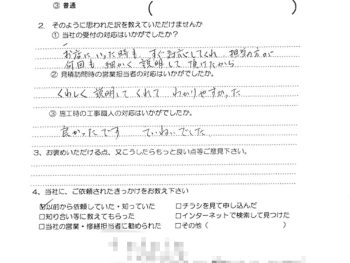 ③ 普通
2. そのように思われた訳を教えていただけませんか
① 当社の受付の対応はいかがでしたか。
お店にいった時も、すぐ対応してくれ 担当の方が
何回も 細かく 説明して 頂けたから
② 見積訪問時の営業担当者の対応はいかがでしたか。
くわしく 説明してくれて わかりやすかった
③ 施工時の工事職人の対応はいかがでしたか。
良かったです ていねいでした
3、お褒めいただける点、又こうしたらちっと良い点等ご意見下さい。
4、当社に、ご依頼されたきっかけをお教え下さい
☑以前から依頼していた・知っていた □チラシを見て申し込んだ
□知り合い等に教えてもらった □インターネットで検索して見つけた
□当社の営業・修繕担当者に勧められた □その他( )